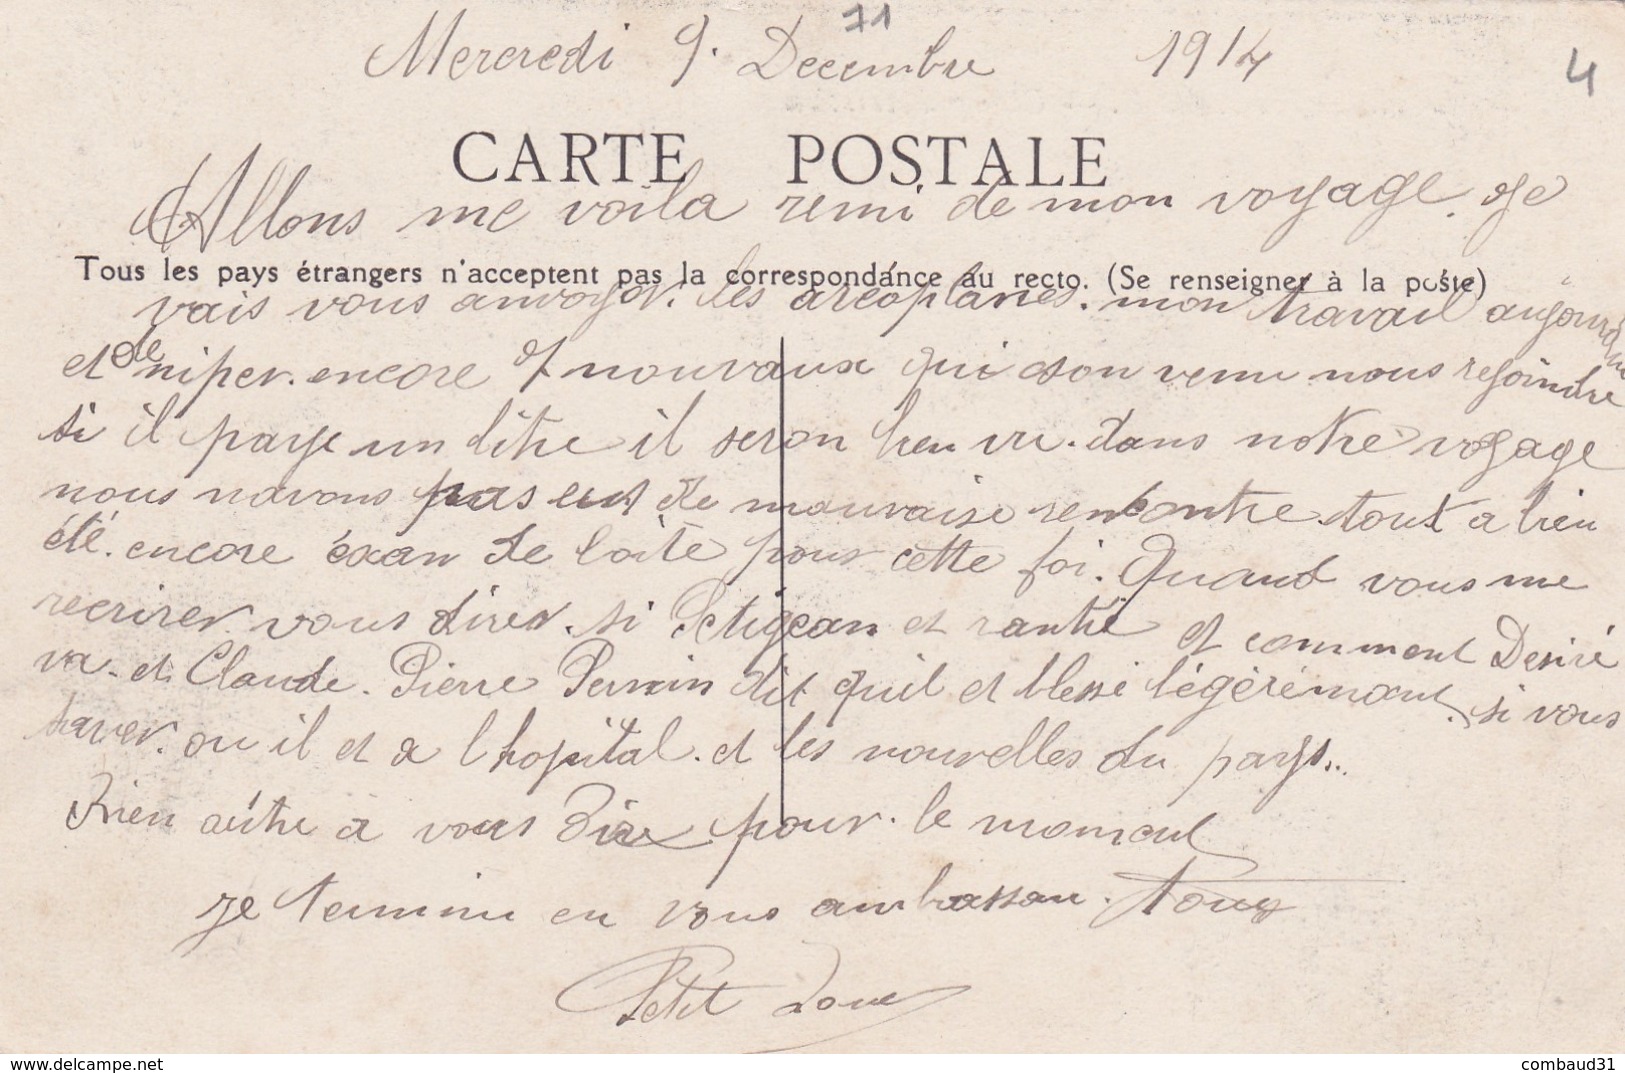 71
Mercredi 9. Decembre 1914
4
CARTE POSTALE
Allons me voila remi de mon voyage. Je
Tous les pays étrangers n'acceptent pas la correspondance au recto. (Se renseigner à la poste)
vais vous anvoyor. les areoplanes. mon travail aujourdhu
et de niper. encore 7 nouvaux qui son venu nous rejoindre
si il paye un litre il seron bien vu. dans notre voyage
nous navons pas eus de mauvaise rencontre tout a bien
été. encore exan de boite pour cette foi. Quand vous me
recrirer vous direr. si Petigean et rantré et comment Desiré
va. et Claude. Pierre Perrin dit quil et blessé légèrémant. si vous
saver. ou il et a lhopital. et les nouvelles du pays...
Rien autre a vous Dire pour. le momant
je termine en vous ambrassan. tous
Petit
www.delcampe.net
combaud31